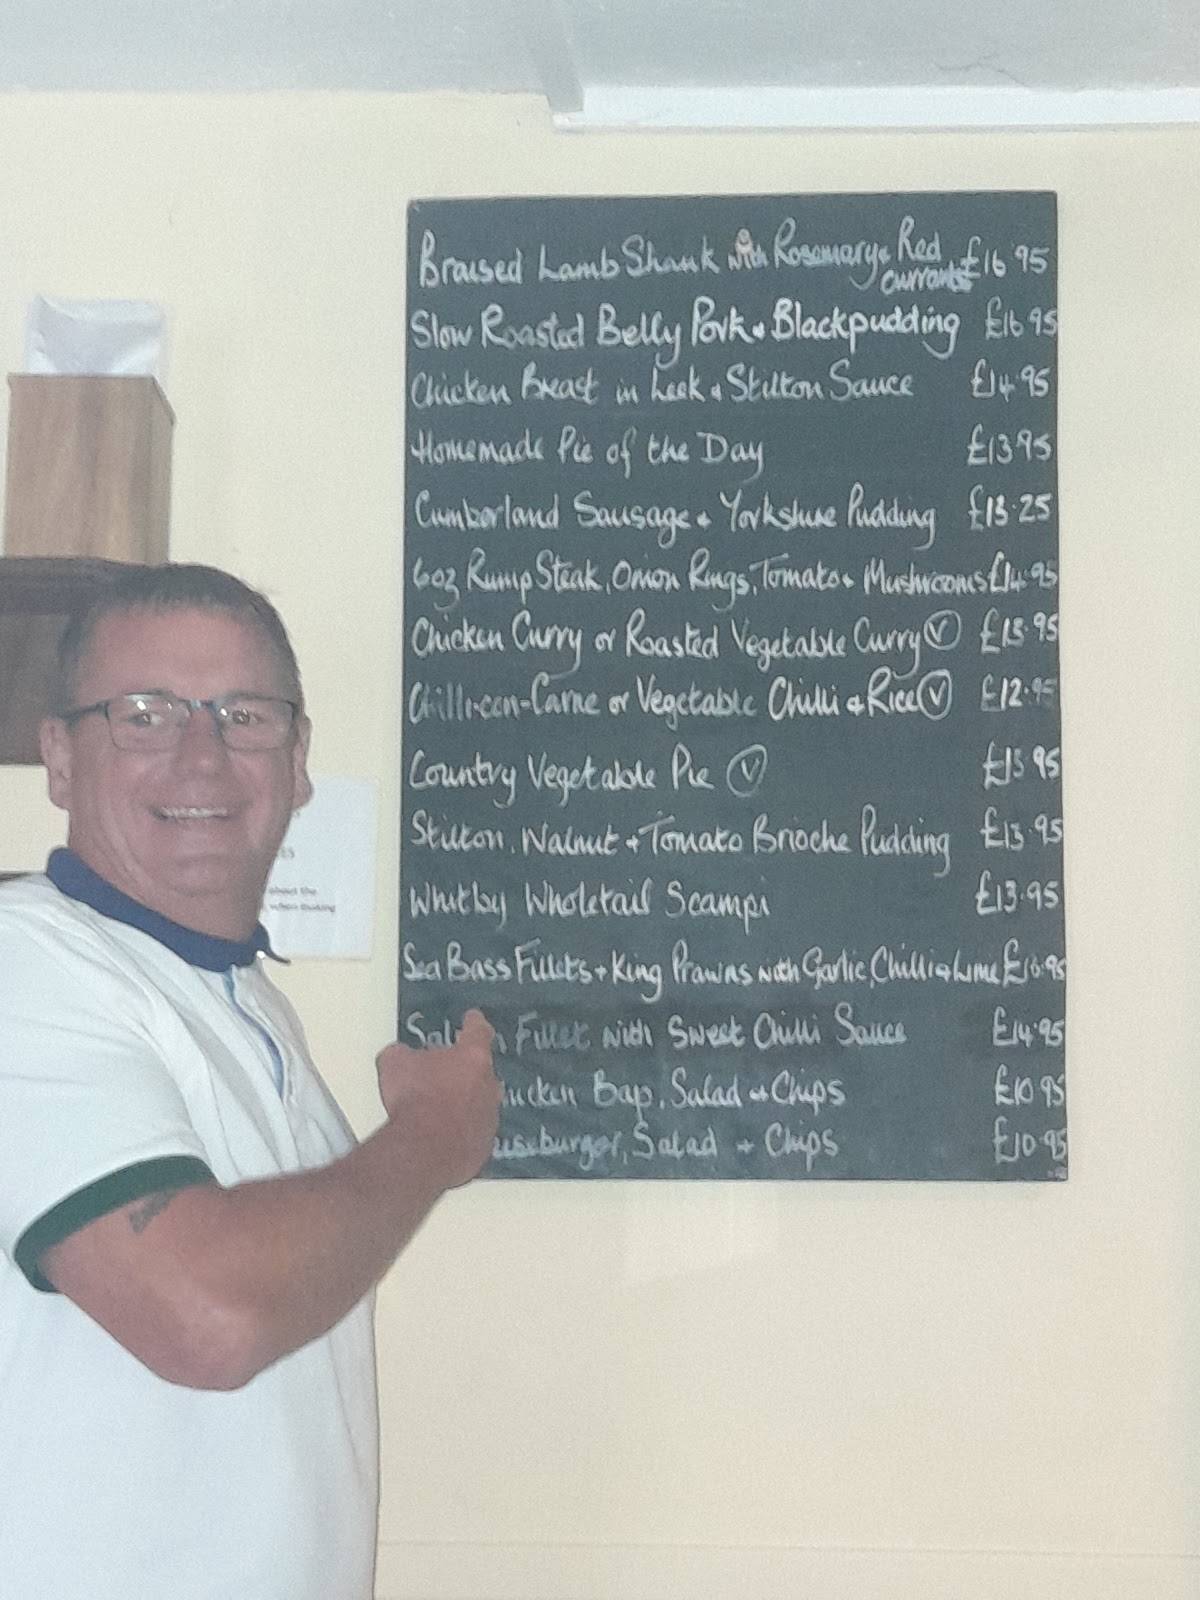 Braised Lamb Shank with Rosemary & Red currants £16.95
Slow Roasted Belly Pork & Blackpudding £16.95
Chicken Breast in Leek & Stilton Sauce £14.95
Homemade Pie of the Day £13.95
Cumberland Sausage & Yorkshire Pudding £13.25
6oz Rump Steak, Onion Rings, Tomato & Mushrooms £14.95
Chicken Curry or Roasted Vegetable Curry (V) £13.95
Chilli-con-Carne or Vegetable Chilli & Rice (V) £12.95
Country Vegetable Pie (V) £13.95
Stilton, Walnut & Tomato Brioche Pudding £13.95
Whitby Wholetail Scampi £13.95
Sea Bass Fillets & King Prawns with Garlic, Chilli & Lime £16.95
Fillet with Sweet Chilli Sauce £14.95
Bap, Salad & Chips £10.95
Salad & Chips £10.95
about the
when making